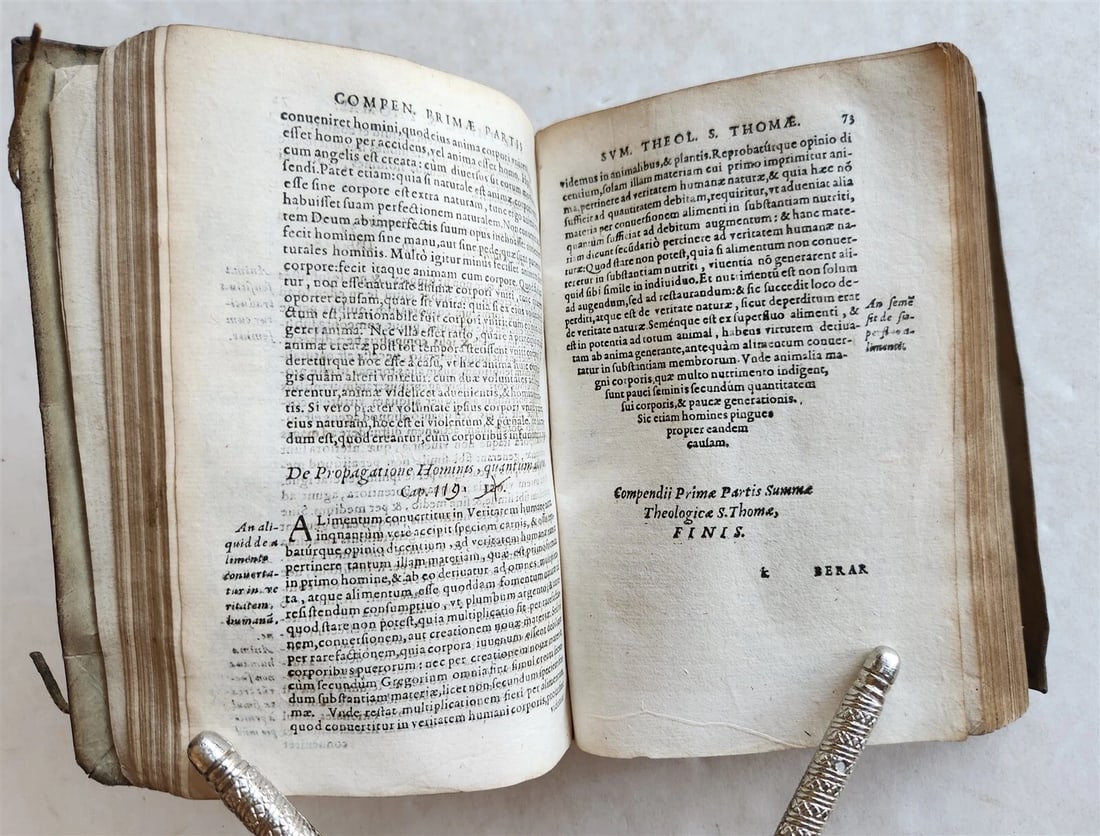 COMPEN. PRIMÆ PARTIS
conueniret homini, quod eius anima corpori
esset homo per accidens, vel anima esset homo.
cum angelis est creata: cum diuersis sit
fendi. Patet etiam: quia si naturale est animæ
esse sine corpore est extra naturam,
habuisset suam perfectionem naturalem. Non
tem Deum ab imperfectis suum opus
fecit hominem sine manu, aut sine pede,
turales hominis. Multò igitur minus fecisset
corpore: fecit itaque animam cum corpore.
tur, non esse naturale animæ corpori vniri,
oportet causam, quare sit vnita: quia si ex
ctum est, irrationabile fuit corpori vniri: cum
geret anima. Nec vlla esset ratio, quare
animæ creatæ posteriori tempore
deretur que hoc esse à casu, vt hæc anima huic
gis quàm alteri vniretur. cum duæ voluntates
rerentur, animæ videlicet aduenientis, &
tis. Si vero præter voluntatē ipsius corpori
eius naturam, hoc est ei violentum, & pœnale.
dum est, quod creantur, cum corporibus
De Propagatione Hominis, quantum
Cap. 119. 120.
An ali-
quid de a
limento
conuerta-
tur in ve
ritatem
humanā.
ALimentum conuertitur in Veritatem
inquantum vere accipit speciem carnis, &
baturque opinio dicentium, ad veritatem
pertinere tantum illam materiam, quæ est
in primo homine, & ab eo deriuatur ad omnes,
ta, atque alimentum esse quoddam fomentum
resistendum consumptiuo, vt plumbum argento;
quod stare non potest, quia multiplicatio fit per
nem, conuersionem, aut creationem nouæ materiæ.
per rarefactionem, quia corpora iuuenum essent
corporibus puerorum: nec per creationem
cum secundum Gregorium omnia sint simul
dum substantiam materiæ, licet non secundum speciem
mæ. Vnde restat, multiplicationem fieri per
quod conuertitur in veritatem humani corporis,
SVM. THEOL. S. THOMÆ. 73
videmus in animalibus, & plantis. Reprobatúrque opinio di
centium, solam illam materiam cui primo imprimitur ani-
ma, pertinere ad veritatem humanæ naturæ, & quia hæc nō
sufficit ad quantitatem debitam, requiritur, vt adueniat alia
materia per conuersionem alimenti in substantiam nutriti,
quantùm sufficiat ad debitum augmentum: & hanc mate-
riam dicunt secūdariò pertinere ad veritatem humanæ na-
turæ: Quod stare non potest, quia si alimentum non conuer-
teretur in substantiam nutriti, viuentia nō generarent ali-
quid sibi simile in indiuiduo. Et nutrimentū est non solum
ad augendum, sed ad restaurandum: & sic succedit loco de-
perditi, atque est de veritate naturæ, sicut deperditum erat
de veritate naturæ. Seménque est ex superfluo alimenti, &
est in potentia ad totum animal, habens virtutem deriua-
tam ab anima generante, antequàm alimentum conuer-
tatur in substantiam membrorum. Vnde animalia ma-
gni corporis, quæ multo nutrimento indigent,
sunt pauci seminis secundùm quantitatem
sui corporis, & paucæ generationis.
Sic etiam homines pingues
propter eandem
causam.
An semē
fit de su-
perfluo a-
limenti.
Compendii Primæ Partis Summæ
Theologicæ S. Thomæ,
FINIS.
k BERAR